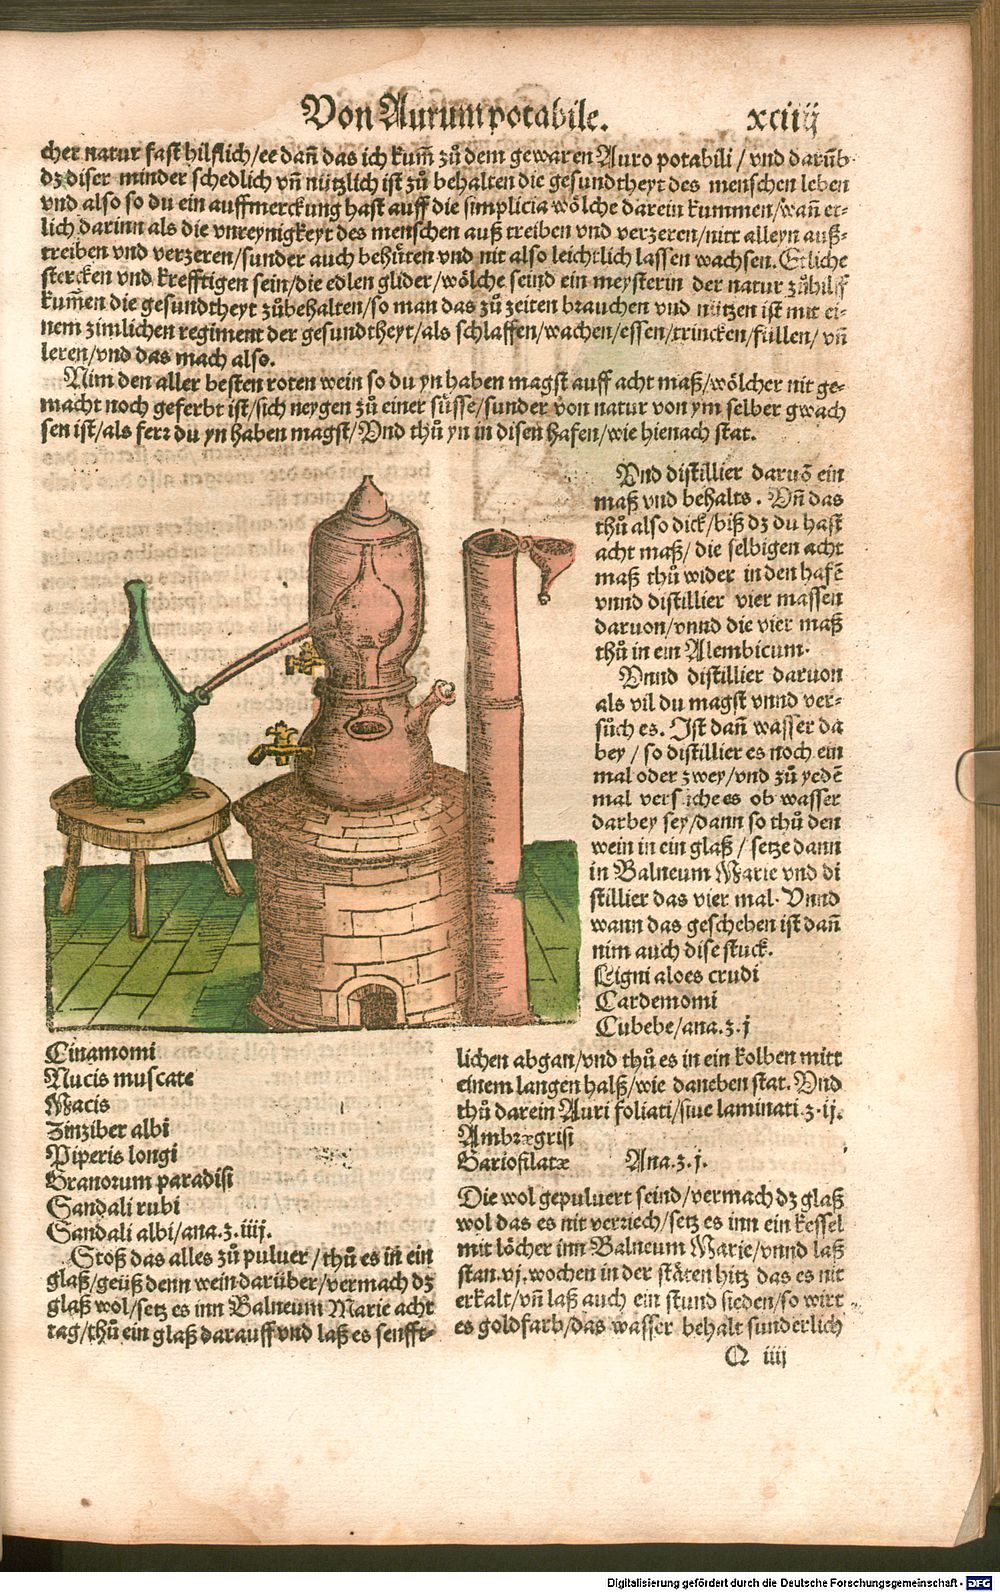 Von Aurum potabile. xciiij
cher natur fast hilflich/ee dañ das ich kum̃ zů dem gewaren Auro potabili/vnd darũb
dz diser minder schedlich vñ nützlich ist zů behalten die gesundtheyt des menschen leben
vnd also so du ein auffmerckung hast auff die simplicia wölche darein kummen/wañ et-
lich darinn als die vnreynigkeyt des menschen auß treiben vnd verzeren/nitt alleyn auß-
treiben vnd verzeren/sunder auch behüten vnd nit also leichtlich lassen wachsen. Etliche
stercken vnd krefftigen sein/die edlen glider/wölche seind ein meysterin der natur zůhilff
kum̃en die gesundtheyt zůbehalten/so man das zů zeiten brauchen vnd nützen ist mit ei-
nem zimlichen regiment der gesundtheyt/als schlaffen/wachen/essen/trincken/füllen/vñ
leren/vnd das mach also.
Nim den aller besten roten wein so du yn haben magst auff acht maß/wölcher nit ge-
macht noch geferbt ist/sich neygen zů einer süsse/sunder von natur von ym selber gwach
sen ist/als ferr du yn haben magst/Vnd thů yn in disen hafen/wie hienach stat.
Vnd distillier daruõ ein
maß vnd behalts. Vñ das
thů also dick/biß dz du hast
acht maß/die selbigen acht
maß thů wider in den hafẽ
vnnd distillier vier massen
daruon/vnnd die vier maß
thů in ein Alembicum.
Vnnd distillier daruon
als vil du magst vnnd ver-
sůch es. Ist dañ wasser da
bey/so distillier es noch ein
mal oder zwey/vnd zů yedẽ
mal versůche es ob wasser
darbey sey/dann so thů den
wein in ein glaß/setze dann
in Balneum Marie vnd di
stillier das vier mal. Vnnd
wann das geschehen ist dañ
nim auch dise stuck.
Ligni aloes crudi
Cardemomi
Cubebe/ana.ʒ.j
Cinamomi
Nucis muscate
Macis
Zinziber albi
Piperis longi
Granorum paradisi
Sandali rubi
Sandali albi/ana.ʒ.iiij.
Stoß das alles zů puluer/thů es in ein
glaß/geüß denn wein darüber/vermach dz
glaß wol/setz es inn Balneum Marie acht
tag/thů ein glaß darauff vnd laß es senfft-
lichen abgan/vnd thů es in ein kolben mitt
einem langen halß/wie daneben stat. Vnd
thů darein Auri foliati/siue laminati.ʒ.ij.
Ambræ grisi
Gariofilatæ Ana.ʒ.j.
Die wol gepuluert seind/vermach dz glaß
wol das es nit verriech/setz es inn ein kessel
mit löcher inn Balneum Marie/vnnd laß
stan.vj.wochen in der stäten hitz das es nit
erkalt/vñ laß auch ein stund sieden/so wirt
es goldfarb/das wasser behalt sunderlich
Q iiij
Digitalisierung gefördert durch die Deutsche Forschungsgemeinschaft - DFG